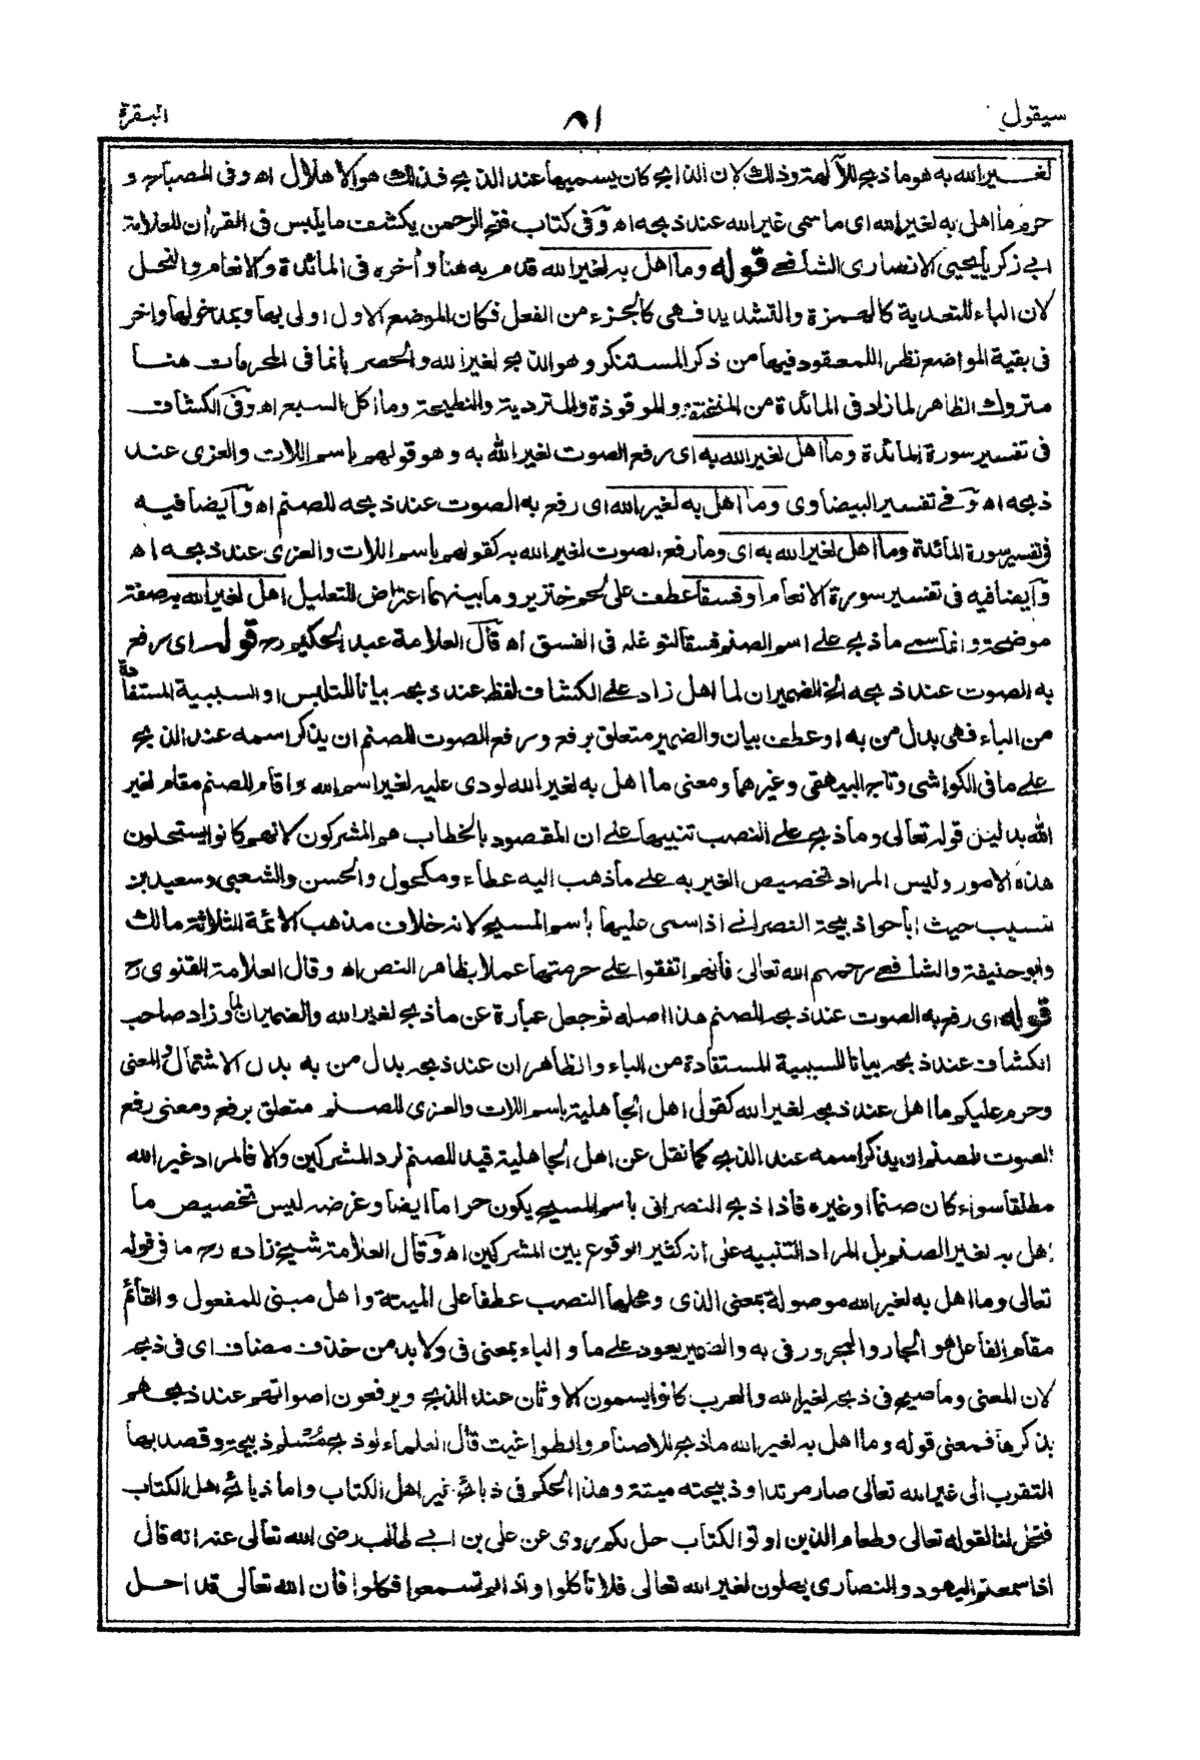 سيقول
٨١
البقرة
لغير الله به هو ما ذبح للآلهة وذلك لان الذابح كان يسميها عند الذبح فذلك هو الاهلال اه وفى المصباح و
حرم ما اهل به لغير الله اى ما سمى غير الله عند ذبحه اه وفى كتاب فتح الرحمن يكشف ما يلبس فى القرآن للعلامة
ابى زكريا يحيى الانصارى الشافعى قوله وما اهل به لغير الله قدم به هنا وأخره فى المائدة والانعام والنحل
لان الباء للتعدية كالهمزة والتشديد فهى كالجزء من الفعل فكان الموضع الاول اولى بها وبمدخولها واخر
فى بقية المواضع نظرا للمعقود فيها من ذكر المستنكر وهو الذبح لغير الله والحصر بانما فى المحرمات هنا
متروك الظاهر لما زاد فى المائدة من المنخنقة والموقوذة والمتردية والنطيحة وما اكل السبع اه وفى الكشاف
فى تفسير سورة المائدة وما اهل لغير الله به اى رفع الصوت لغير الله به وهو قولهم باسم اللات والعزى عند
ذبحه اه وفى تفسير البيضاوى وما اهل به لغير الله اى رفع به الصوت عند ذبحه للصنم اه وايضا فيه
فى تفسير سورة المائدة وما اهل لغير الله به اى وما رفع الصوت لغير الله به كقولهم باسم اللات والعزى عند ذبحه اه
وايضا فيه فى تفسير سورة الانعام او فسقا عطف على لحم خنزير وما بينهما اعتراض للتعليل اهل لغير الله به صفة
موضحة وانما سمى ما ذبح على اسم الصنم فسقا لتوغله فى الفسق اه قال العلامة عبد الحكيم رح قوله اى رفع
به الصوت عند ذبحه الخ الضميران لما اهل زاد على الكشاف لفظ عند ذبحه بيانا للتلبس او السببية المستفادة
من الباء فهى بدل من به او عطف بيان والضمير متعلق برفع ورفع الصوت للصنم ان يذكر اسمه عند الذبح
على ما فى الكواشى وتاج البيهقى وغيرهما ومعنى ما اهل به لغير الله نودى عليه لغير اسم الله واقام للصنم مقام لغير
الله بدليل قوله تعالى وما ذبح على النصب تنبيها على ان المقصود بالخطاب هو المشركون لانهم كانوا يستحلون
هذه الامور وليس المراد تخصيص الغير به على ما ذهب اليه عطاء ومكحول والحسن والشعبى وسعيد بن
مسيب حيث اباحوا ذبيحة النصرانى اذا سمى عليها باسم المسيح لانه خلاف مذهب الائمة الثلاثة مالك
وابو حنيفة والشافعى رحمهم الله تعالى فانهم اتفقوا على حرمتها عملا بظاهر النص اه وقال العلامة القنوى رح
قوله اى رفع به الصوت عند ذبحه للصنم هذا اصله ثم جعل عبارة عن ما ذبح لغير الله والضميران لما وزاد صاحب
الكشاف عند ذبحه بيانا للسببية المستفادة من الباء والظاهر ان عند ذبحه بدل من به بدل الاشتمال والمعنى
وحرم عليكم ما اهل عند ذبحه لغير الله كقول اهل الجاهلية باسم اللات والعزى للصنم متعلق برفع ومعنى رفع
الصوت للصنم ان يذكر اسمه عند الذبح كما نقل عن اهل الجاهلية قيد للصنم لرد المشركين والا فالمراد غير الله
مطلقا سواء كان صنما او غيره فاذا ذبح النصرانى باسم المسيح يكون حراما ايضا وغرضه ليس تخصيص ما
اهل به لغير الصنم بل المراد التنبيه على انه كثير الوقوع بين المشركين اه وقال العلامة شيخ زاده رح ما فى قوله
تعالى وما اهل به لغير الله موصولة بمعنى الذى ومحلها النصب عطفا على الميتة واهل مبنى للمفعول والقائم
مقام الفاعل هو الجار والمجرور فى به والضمير يعود على ما والباء بمعنى فى ولا بد من حذف مضاف اى فى ذبحه
لان المعنى وما صيح فى ذبحه لغير الله والعرب كانوا يسمون الاوثان عند الذبح ويرفعون اصواتهم عند ذبحهم
بذكرها فمعنى قوله وما اهل به لغير الله ما ذبح للاصنام والطواغيت قال العلماء لو ذبح مسلم ذبيحة وقصد بها
التقرب الى غير الله تعالى صار مرتدا وذبيحته ميتة وهذا الحكم فى ذبائح غير اهل الكتاب واما ذبائح اهل الكتاب
فتحل لنا لقوله تعالى وطعام الذين اوتوا الكتاب حل لكم روى عن على بن ابى طالب رضى الله تعالى عنه انه قال
اذا سمعتم اليهود والنصارى يهلون لغير الله تعالى فلا تأكلوا واذا لم تسمعوا فكلوا فان الله تعالى قد احل